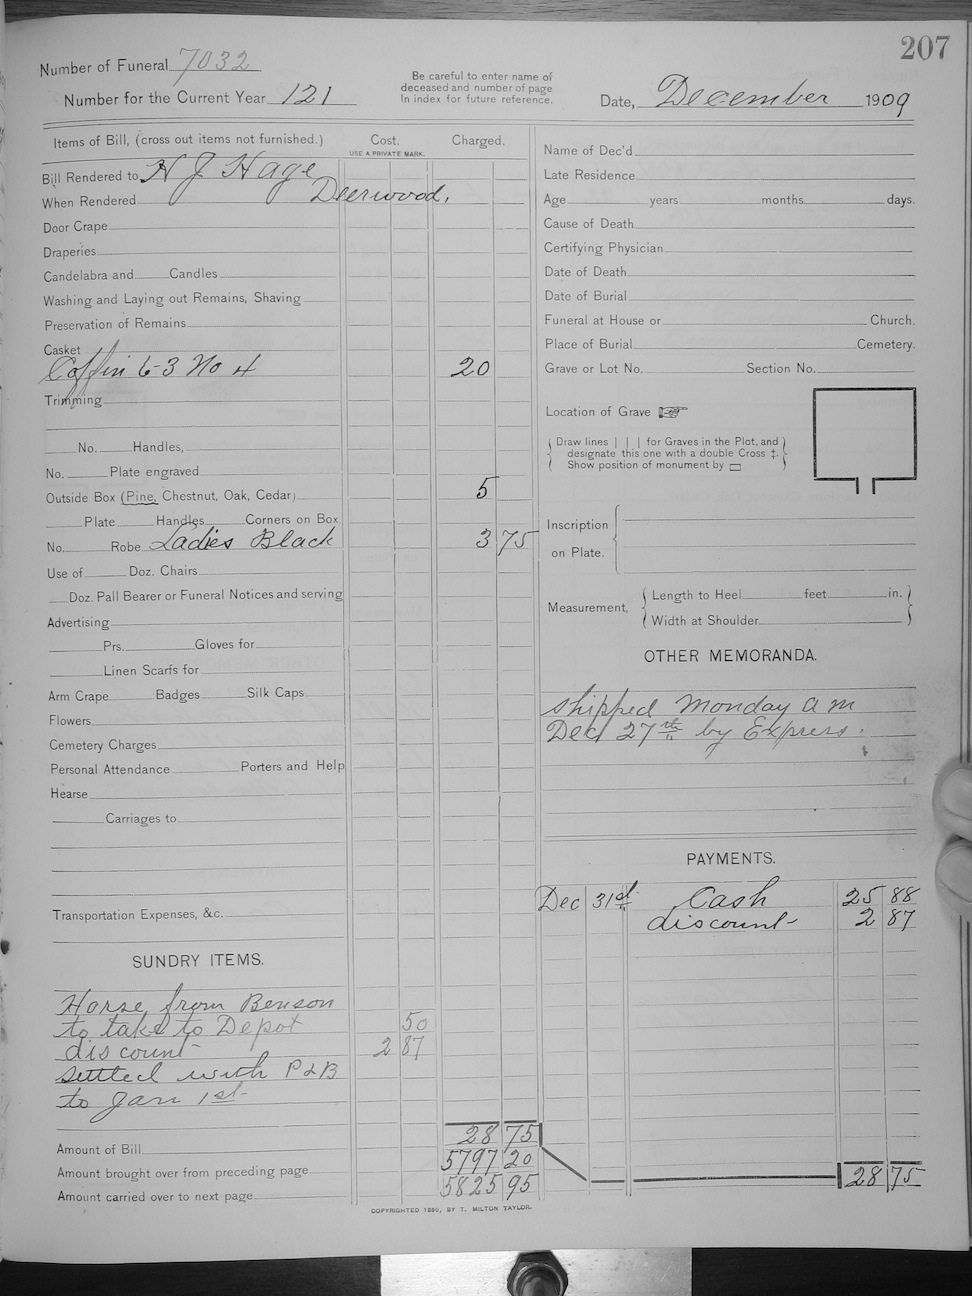 207
Number of Funeral 7032
Number for the Current Year 121
Be careful to enter name of
deceased and number of page
In index for future reference.
Date, December 1909
Items of Bill, (cross out items not furnished.) Cost. Charged.
USE A PRIVATE MARK.
Bill Rendered to H J Hage
When Rendered Deerwood.
Door Crape
Draperies
Candelabra and Candles
Washing and Laying out Remains, Shaving
Preservation of Remains
Casket
Coffin 6-3 No 4 20
Trimming
No. Handles,
No. Plate engraved
Outside Box (Pine, Chestnut, Oak, Cedar) 5
Plate Handles Corners on Box
No. Robe Ladies Black 3 75
Use of Doz. Chairs
Doz. Pall Bearer or Funeral Notices and serving
Advertising
Prs. Gloves for
Linen Scarfs for
Arm Crape Badges Silk Caps
Flowers
Cemetery Charges
Personal Attendance Porters and Help
Hearse
Carriages to
Transportation Expenses, &c.
SUNDRY ITEMS.
Horse from Benson
to take to Depot 50
discount 2 87
settled with P & B
to Jan 1st
Amount of Bill 28 75
Amount brought over from preceding page 5797 20
Amount carried over to next page 5825 95
Name of Dec'd
Late Residence
Age years months days.
Cause of Death
Certifying Physician
Date of Death
Date of Burial
Funeral at House or Church.
Place of Burial Cemetery.
Grave or Lot No. Section No.
Location of Grave
Draw lines | | | for Graves in the Plot, and
designate this one with a double Cross ‡.
Show position of monument by ▭
Inscription
on Plate.
Measurement,
Length to Heel feet in.
Width at Shoulder
OTHER MEMORANDA.
shipped Monday a m
Dec 27th by Express.
PAYMENTS.
Dec 31st Cash 25 88
discount 2 87
28 75
COPYRIGHTED 1890, BY T. MILTON TAYLOR.